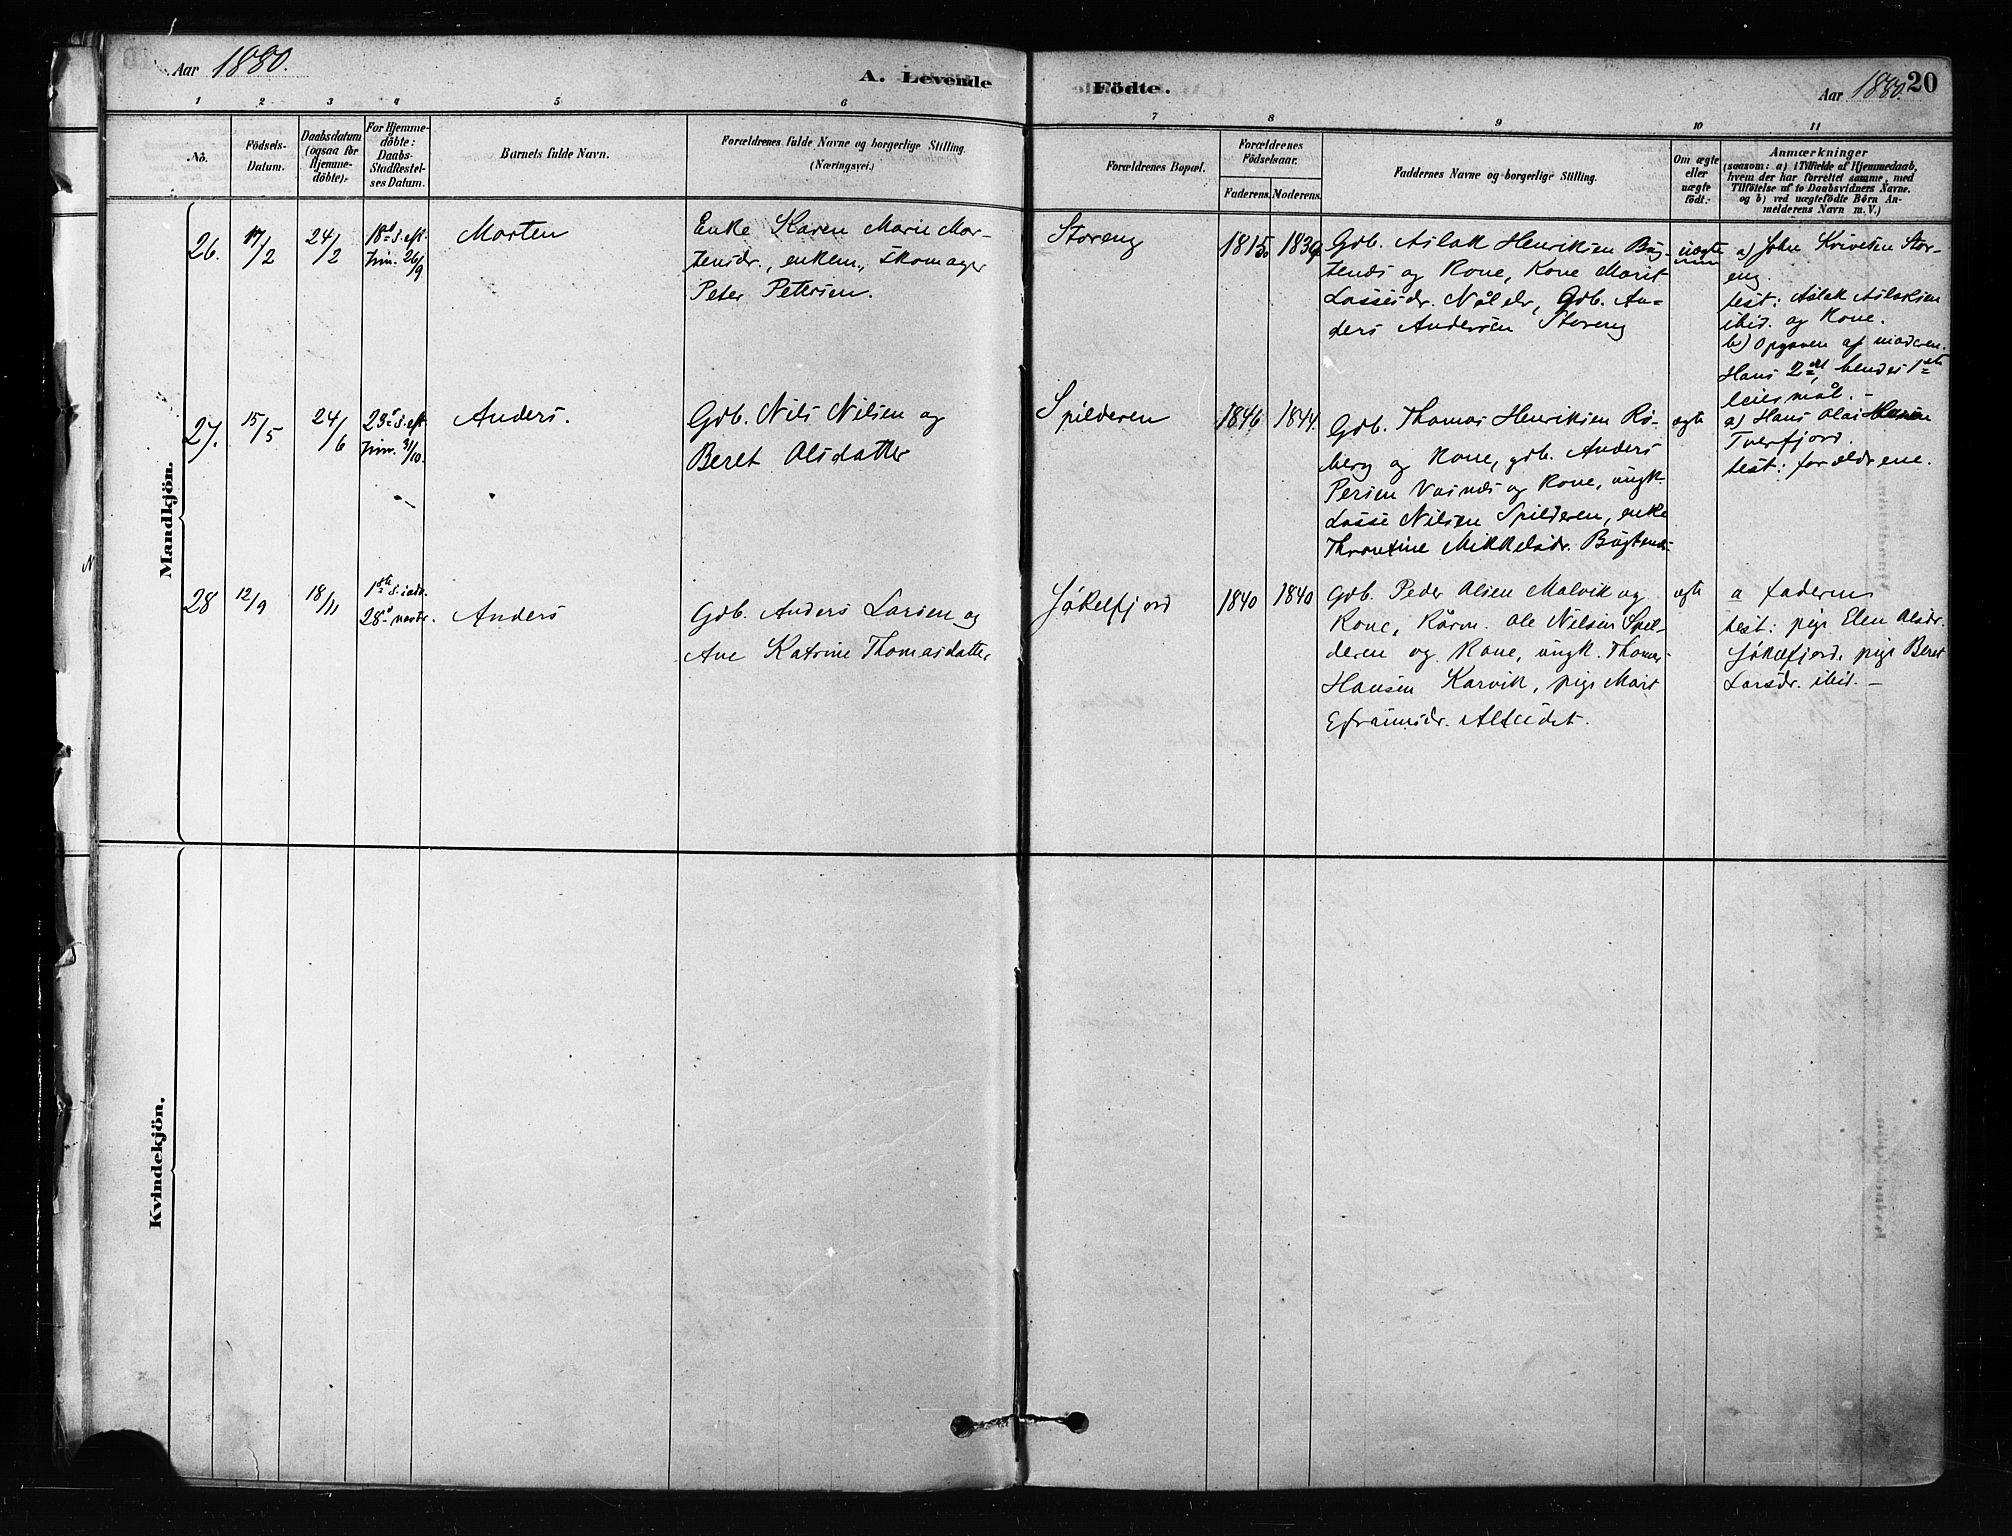 Aar 1880.
A. Levende
Födte.
Aar 1880. 20
1 2 3 4 5 6 7 8 9 10 11
No.
Födsels-
Datum.
Daabsdatum
(ogsaa for
Hjemme-
döbte).
For Hjemme-
döbte:
Daabs-
Stadfæstel-
ses Datum.
Barnets fulde Navn.
Forældrenes fulde Navne og borgerlige Stilling.
(Næringsvei.)
Forældrenes Bopæl.
Forældrenes
Födselsaar.
Faderens. Moderens.
Faddernes Navne og borgerlige Stilling.
Om ægte
eller
uægte
födt.
Anmærkninger
(saasom: a) i Tilfælde af Hjemmedaab,
hvem der har forrettet samme, med
Tilföielse af to Daabsvidners Navne.
og b) ved uægtefödte Börn An-
melderens Navn m. V.)
Mandkjön.
26.
17/2
24/2
18de S. eft.
Trin. 26/9
Morten
Enke Karen Marie Mor-
tensdr., enkem., Skomager
Peter Petersen.
Storeng
1815. 1839.
Gdb. Aslak Henriksen Bug-
tends og Kone, Kone Marit
Lassesdr. Nålelv, Gdb. An-
ders Andersen Storeng
uægte
a) John Storeng
test: Aslak Aslaksen
ibid. og Kone.
b) Opgaven af moderen.
Hans 2det, hendes 1ste
leiermål. -
27.
15/5
24/6
23de S. eft
Trin. 31/10.
Anders.
Gdb. Nils Nilsen og
Beret Olsdatter
Spilderen
1846 1844.
Gdb. Thomas Henriksen Rö-
berg og Kone, gdb. Anders
Persen Vasnæs og Kone, ungk.
Lasse Nilsen Spilderen, enke
Mikkelsdr. Bugtends.
ægte
a) Hans Olai
Tverfjord.
test: forældrene.
28
12/9
18/11
1ste S. i adv.
28de novbr.
Anders
Gdb. Anders Larsen og
Ane Katrine Thomasdatter
Jökelfjord
1840 1840
Gdb. Peder Olsen Malvik og
Kone, Kårm. Ole Nilsen Spil-
deren og Kone, ungk. Thomas
Hansen Karvik, pige Marit
Efraimsdr. Alteidet.
ægte
a faderen
test: pige Elen Olsdr.
Jökelfjord, pige Beret
Larsdr. ibid. -
Kvindekjön.